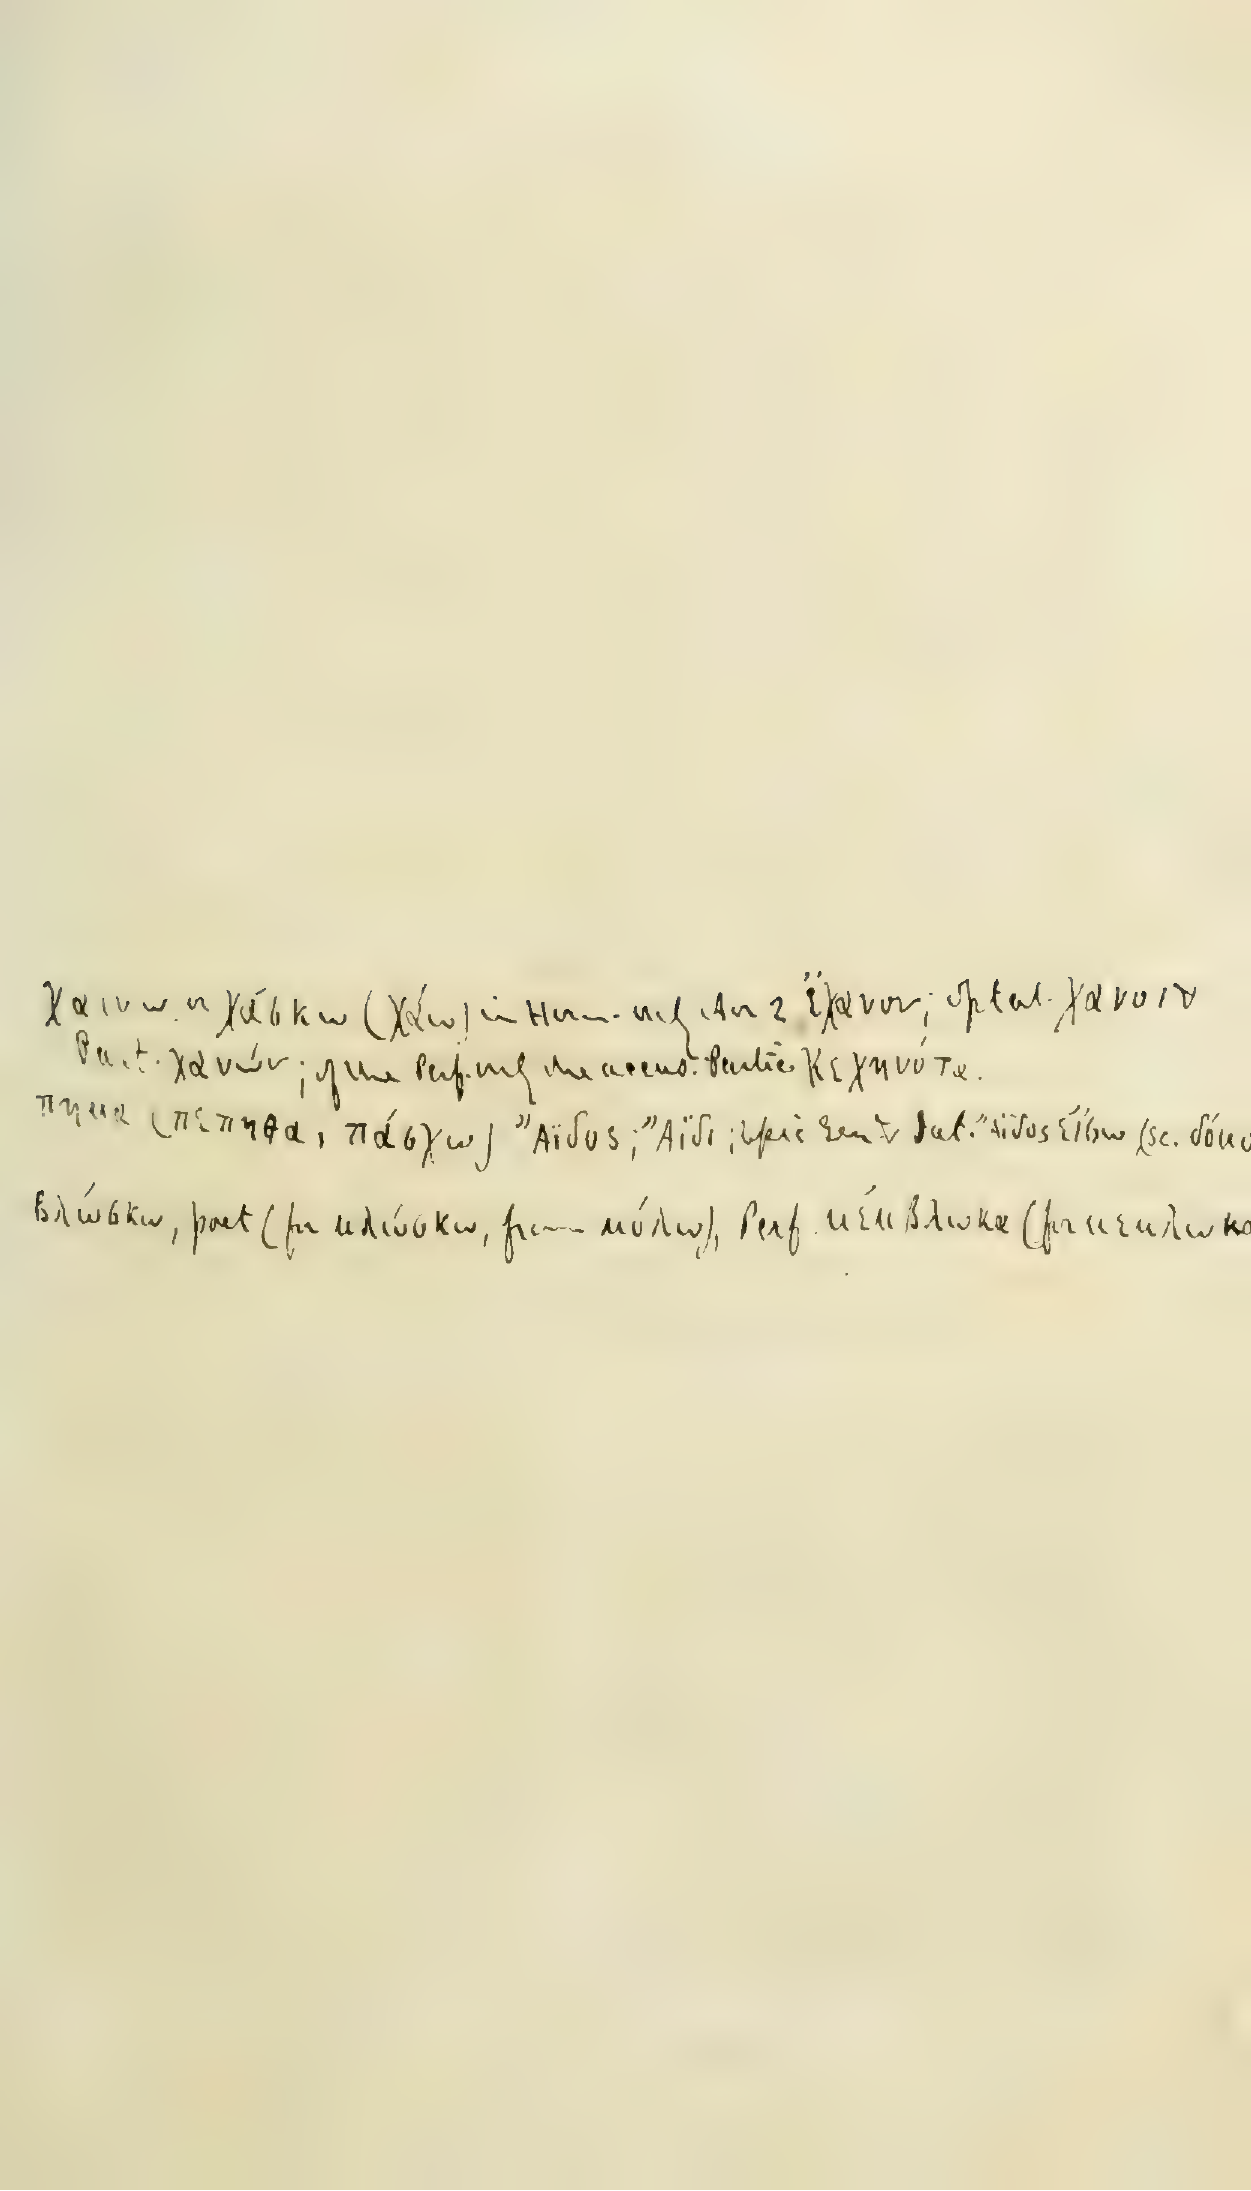 χαινω or χάσκω (χάω) in Hom. only Aor 2 ἔχανον; optat. χανοιν
Part. χανών; of the Perf. only the accus. Partic. κεχηνότα.
πημα (πέπηθα, πάσχω) Ἄϊδος; Ἄϊδι; epic Gen & Dat. Ἄϊδος εἴσω (sc. δόμο
βλώσκω, poet (for μλώσκω, from μόλω), Perf. μέμβλωκα (for μεμλωκα